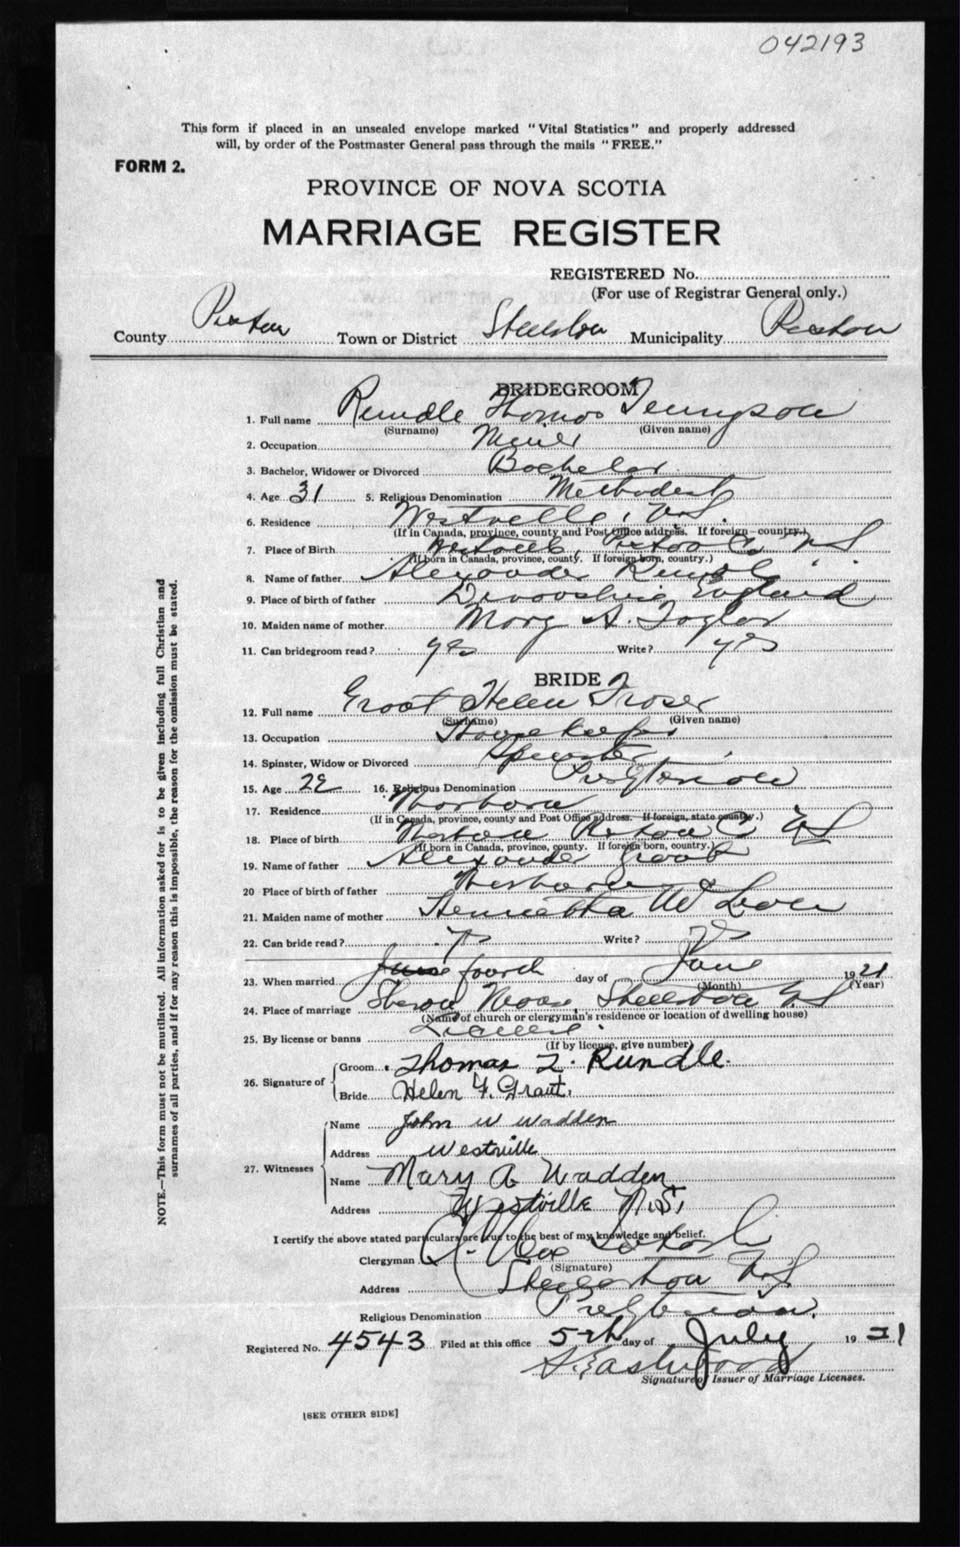 042193
This form if placed in an unsealed envelope marked "Vital Statistics" and properly addressed
will, by order of the Postmaster General pass through the mails "FREE."
FORM 2.
PROVINCE OF NOVA SCOTIA
MARRIAGE REGISTER
REGISTERED No.
(For use of Registrar General only.)
County Pictou Town or District Stellarton Municipality Pictou
BRIDEGROOM
1. Full name Rundle Thomas Tennyson
(Surname) (Given name)
2. Occupation Miner
3. Bachelor, Widower or Divorced Bachelor
4. Age 31 5. Religious Denomination Methodist
6. Residence Westville, N.S.
(If in Canada, province, county and Post Office address. If foreign—country.)
7. Place of Birth Westville, Pictou Co N S
(If born in Canada, province, county. If foreign born, country.)
8. Name of father Alexander Rundle
9. Place of birth of father Devonshire England
10. Maiden name of mother Mary A. Taylor
11. Can bridegroom read? yes Write? yes
BRIDE
12. Full name Grant Helen Fraser
(Surname) (Given name)
13. Occupation Housekeeper
14. Spinster, Widow or Divorced Spinster
15. Age 22 16. Religious Denomination Presbyterian
17. Residence Thorburn
(If in Canada, province, county and Post Office address. If foreign, state country.)
18. Place of birth Thorburn Pictou Co N S
(If born in Canada, province, county. If foreign born, country.)
19. Name of father Alexander Grant
20 Place of birth of father Thorburn
21. Maiden name of mother Henrietta
22. Can bride read? yes Write? yes
23. When married June fourth day of June 1921
(Month) (Year)
24. Place of marriage Sharon Manse Stellarton N S
(Name of church or clergyman's residence or location of dwelling house)
25. By license or banns License
(If by license, give number)
26. Signature of Groom Thomas T. Rundle.
Bride Helen F. Grant.
27. Witnesses Name John W Wadden
Address Westville
Name Mary A Wadden
Address Westville N.S.
I certify the above stated particulars are true to the best of my knowledge and belief.
Clergyman
(Signature)
Address Stellarton N S
Religious Denomination Presbyterian.
Registered No. 4543 Filed at this office 5th day of July 1921
Eastwood
Signature of Issuer of Marriage Licenses.
[SEE OTHER SIDE]
NOTE.—This form must not be mutilated. All information asked for is to be given including full Christian and
surnames of all parties, and if for any reason this is impossible, the reason for the omission must be stated.